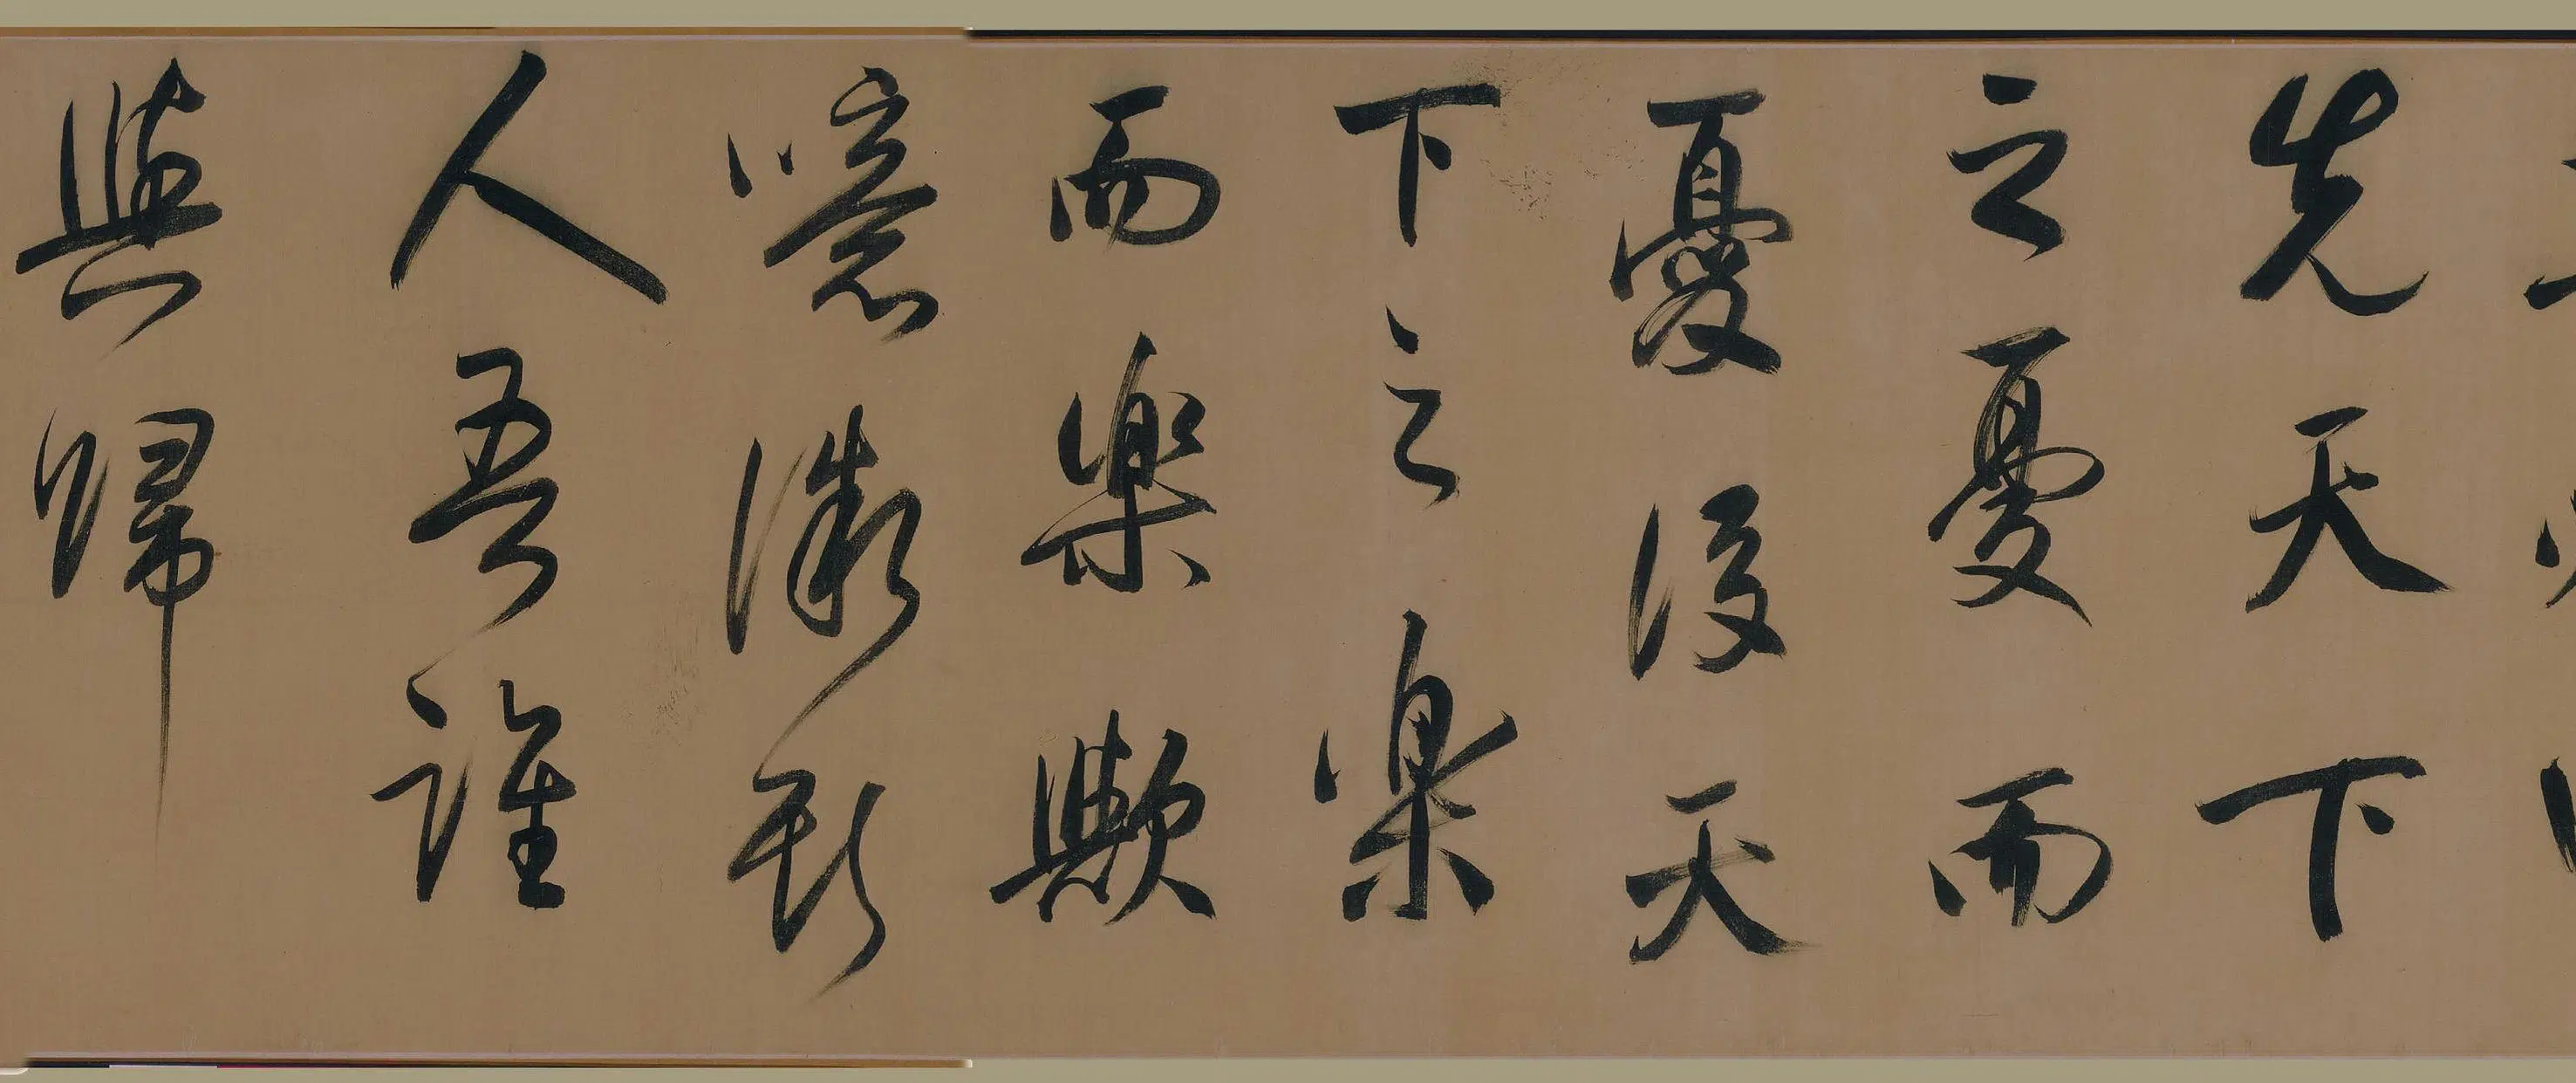 先天下
之憂而
憂後天
下之樂
而樂歟
噫微斯
人吾誰
與歸